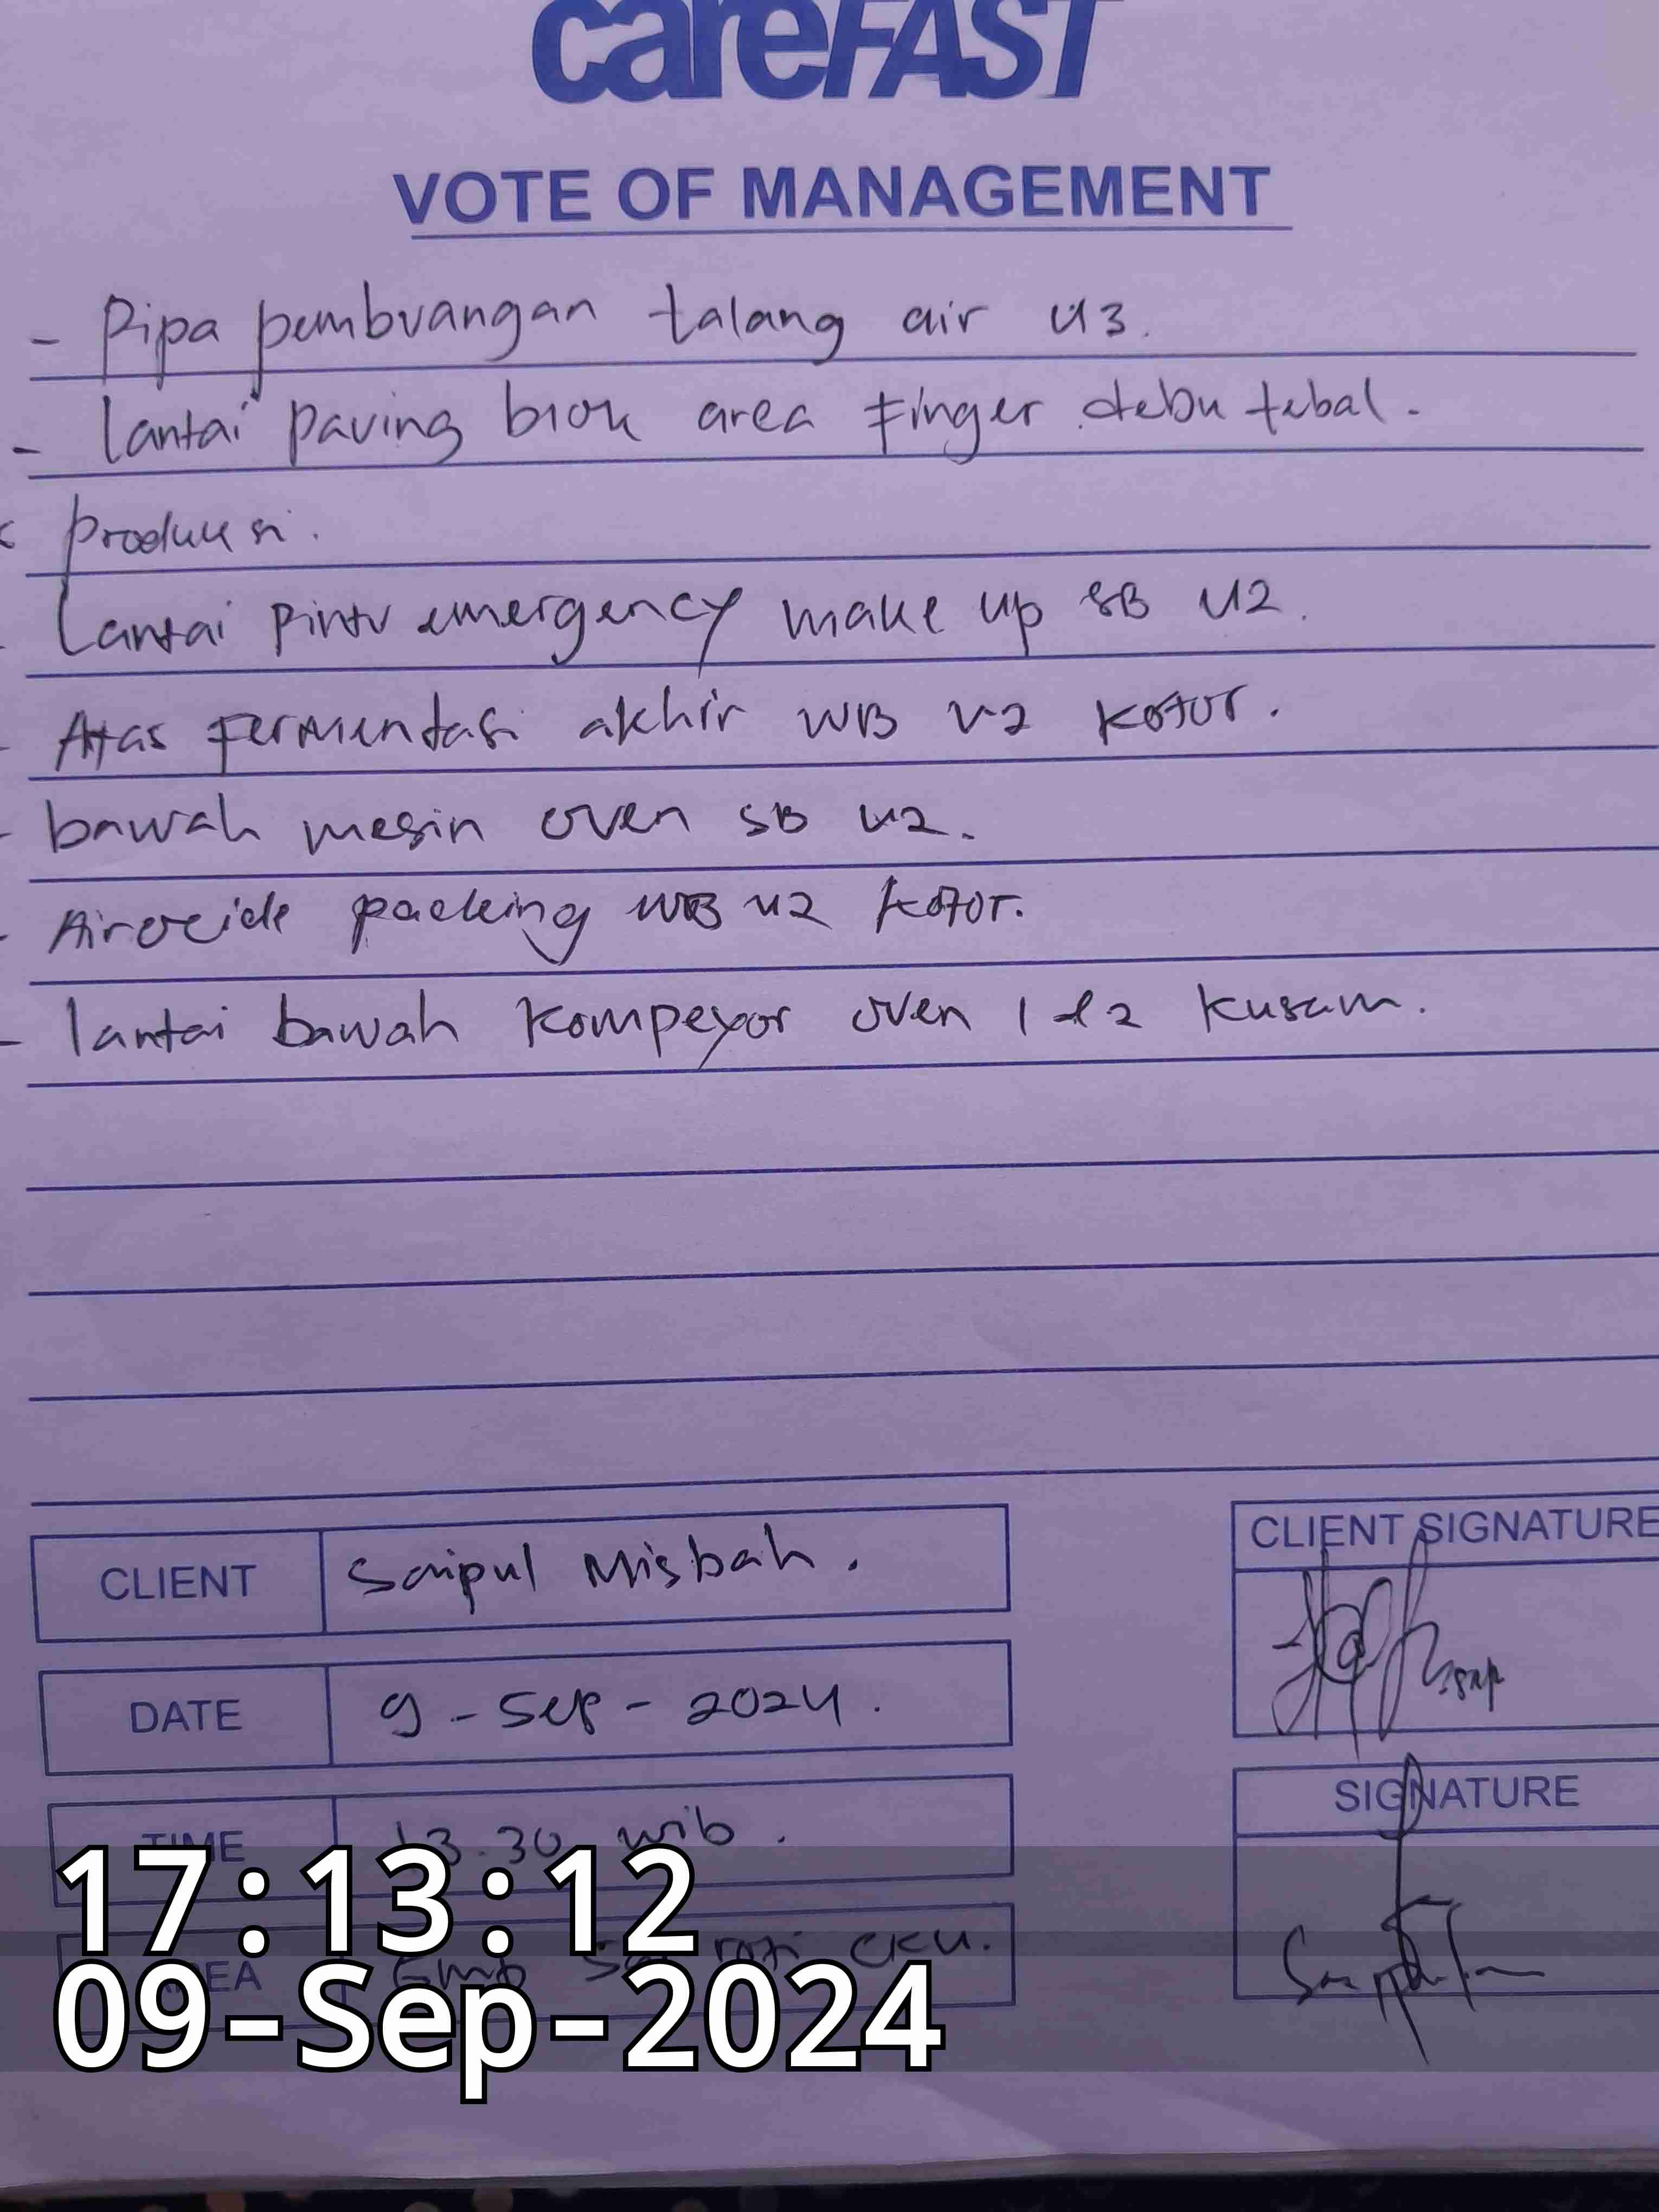 careFAST
VOTE OF MANAGEMENT
- Pipa pembuangan talang air U3.
- lantai paving blok area Finger debu tebal.
produksi.
Lantai pintu emergency make up SB U2.
- Atas Fermentasi akhir WB U2 kotor.
- bawah mesin oven SB U2.
- Airocide packing WB U2 kotor.
- lantai bawah kompeyor oven 1 & 2 kusam.
CLIENT Saipul Misbah.
CLIENT SIGNATURE
DATE 9 - Sep - 2024.
SIGNATURE
TIME 13.30 wib.
17:13:12
AREA roti CKU.
09-Sep-2024